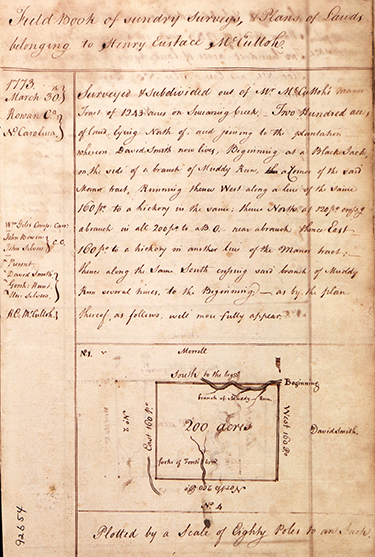 Field Book of Sundry Surveys, & Plans of Lands
belonging to Henry Eustace McCulloh.
1773.
March 30
Rowan Co
No Carolina
Surveyed & Subdivided out of Mr McCulloh's Manor
Tract of 1243 acres on Swearing Creek, Two Hundred acres
of land, lying North of, and joining to the plantation
whereon David Smith now lives, Beginning at a Black Jack,
on the side of a branch of Muddy Run, a Corner of the said
Manor tract, Running thence West along a line of the Same
160 ps. to a hickory in the same; thence North, at 120 ps.
a branch in all 200 ps. to a B.O. near a branch thence East
160 ps. to a hickory in another line of the Manor tract;
thence along the Same South crossing said branch of Muddy
Run several times, to the Beginning — as by the plan
thereof, as follows, will more fully appear.
Wm Giles
John Bowers
John Silvers
C.C.
Present
David Smith
H.E. McCulloh
No 1.
Merrell
South to the begg
Beginning
branch of Muddy Run
No 2
East 160 Ps
200 acres
West 160 Ps
David Smith
forks of
North 200 Ps
No 4
Plotted by a Scale of Eighty Poles to an Inch
92654